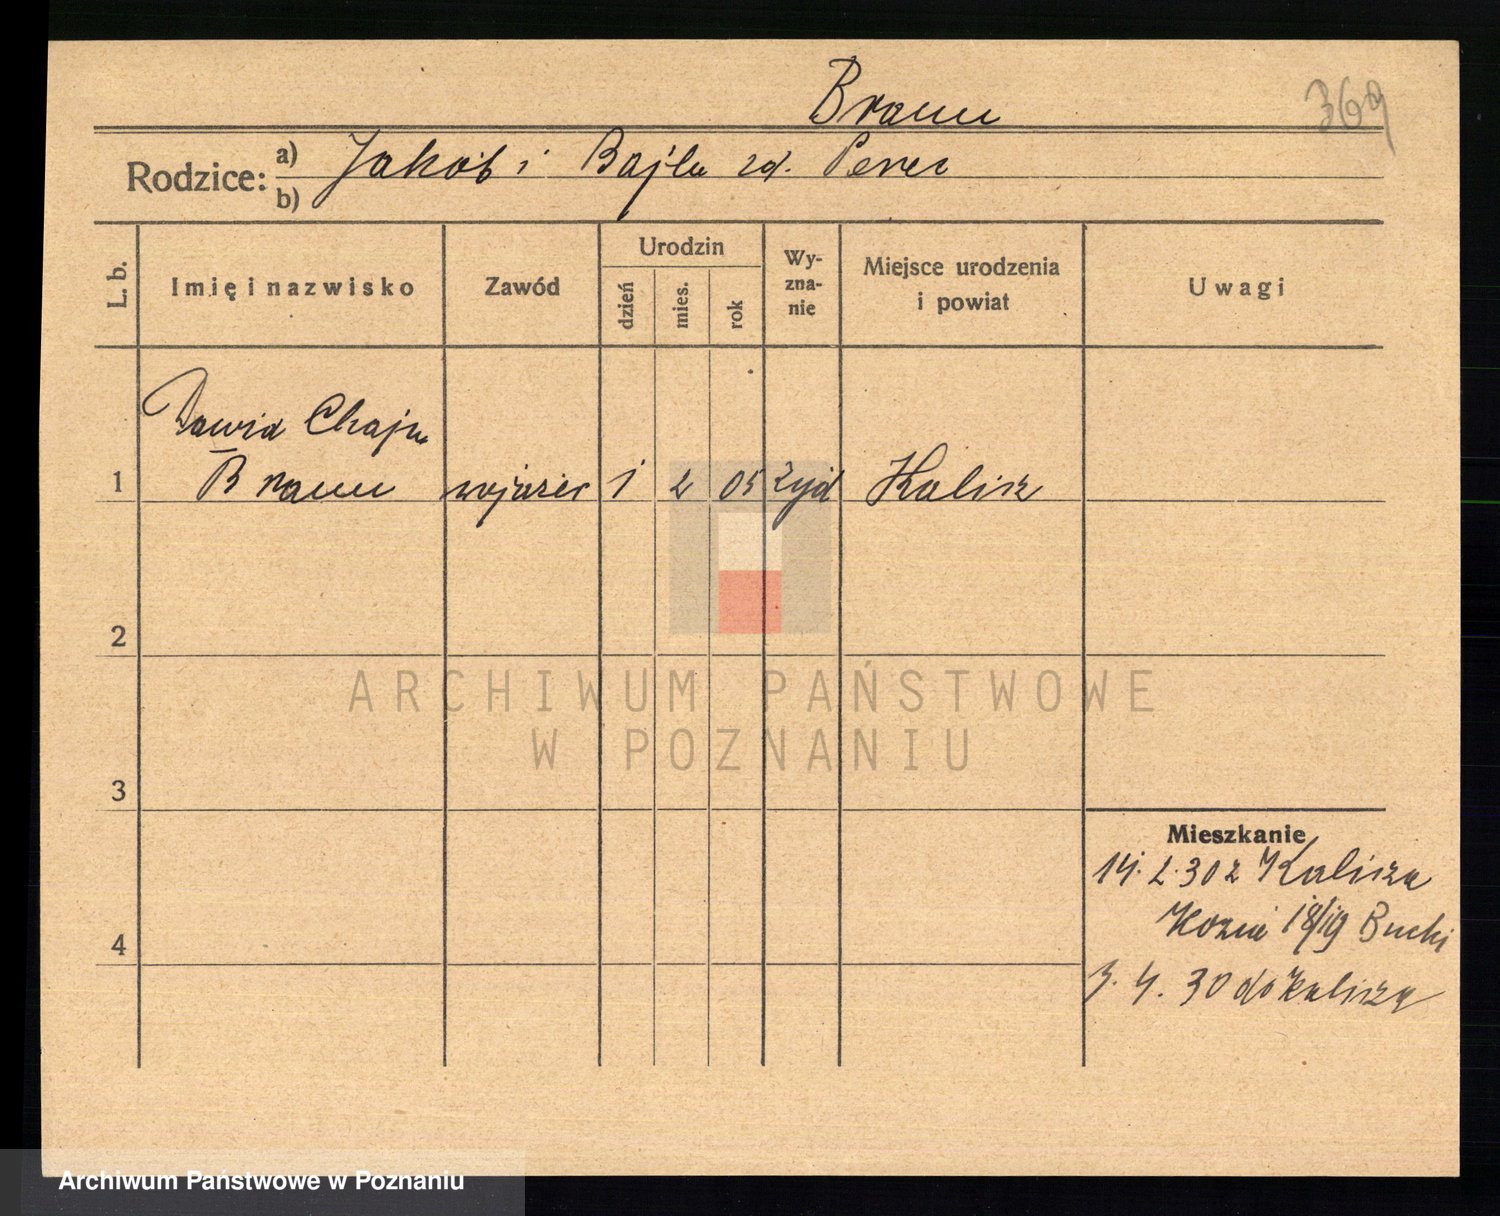 Braun
369
Rodzice: a) Jakób i Bajla zd. Perec
b)
L. b. Imię i nazwisko Zawód Urodzin dzień mies. rok Wy-zna-nie Miejsce urodzenia i powiat Uwagi
Dawid Chaim
1 Braun wojażer 1 2 05 żyd Kalisz
2
3
4
Mieszkanie
14. 2. 30 z Kalisza
Kozia 18/19 Bucki
3. 4. 30 do Kalisza
ARCHIWUM PAŃSTWOWE
W POZNANIU
Archiwum Państwowe w Poznaniu